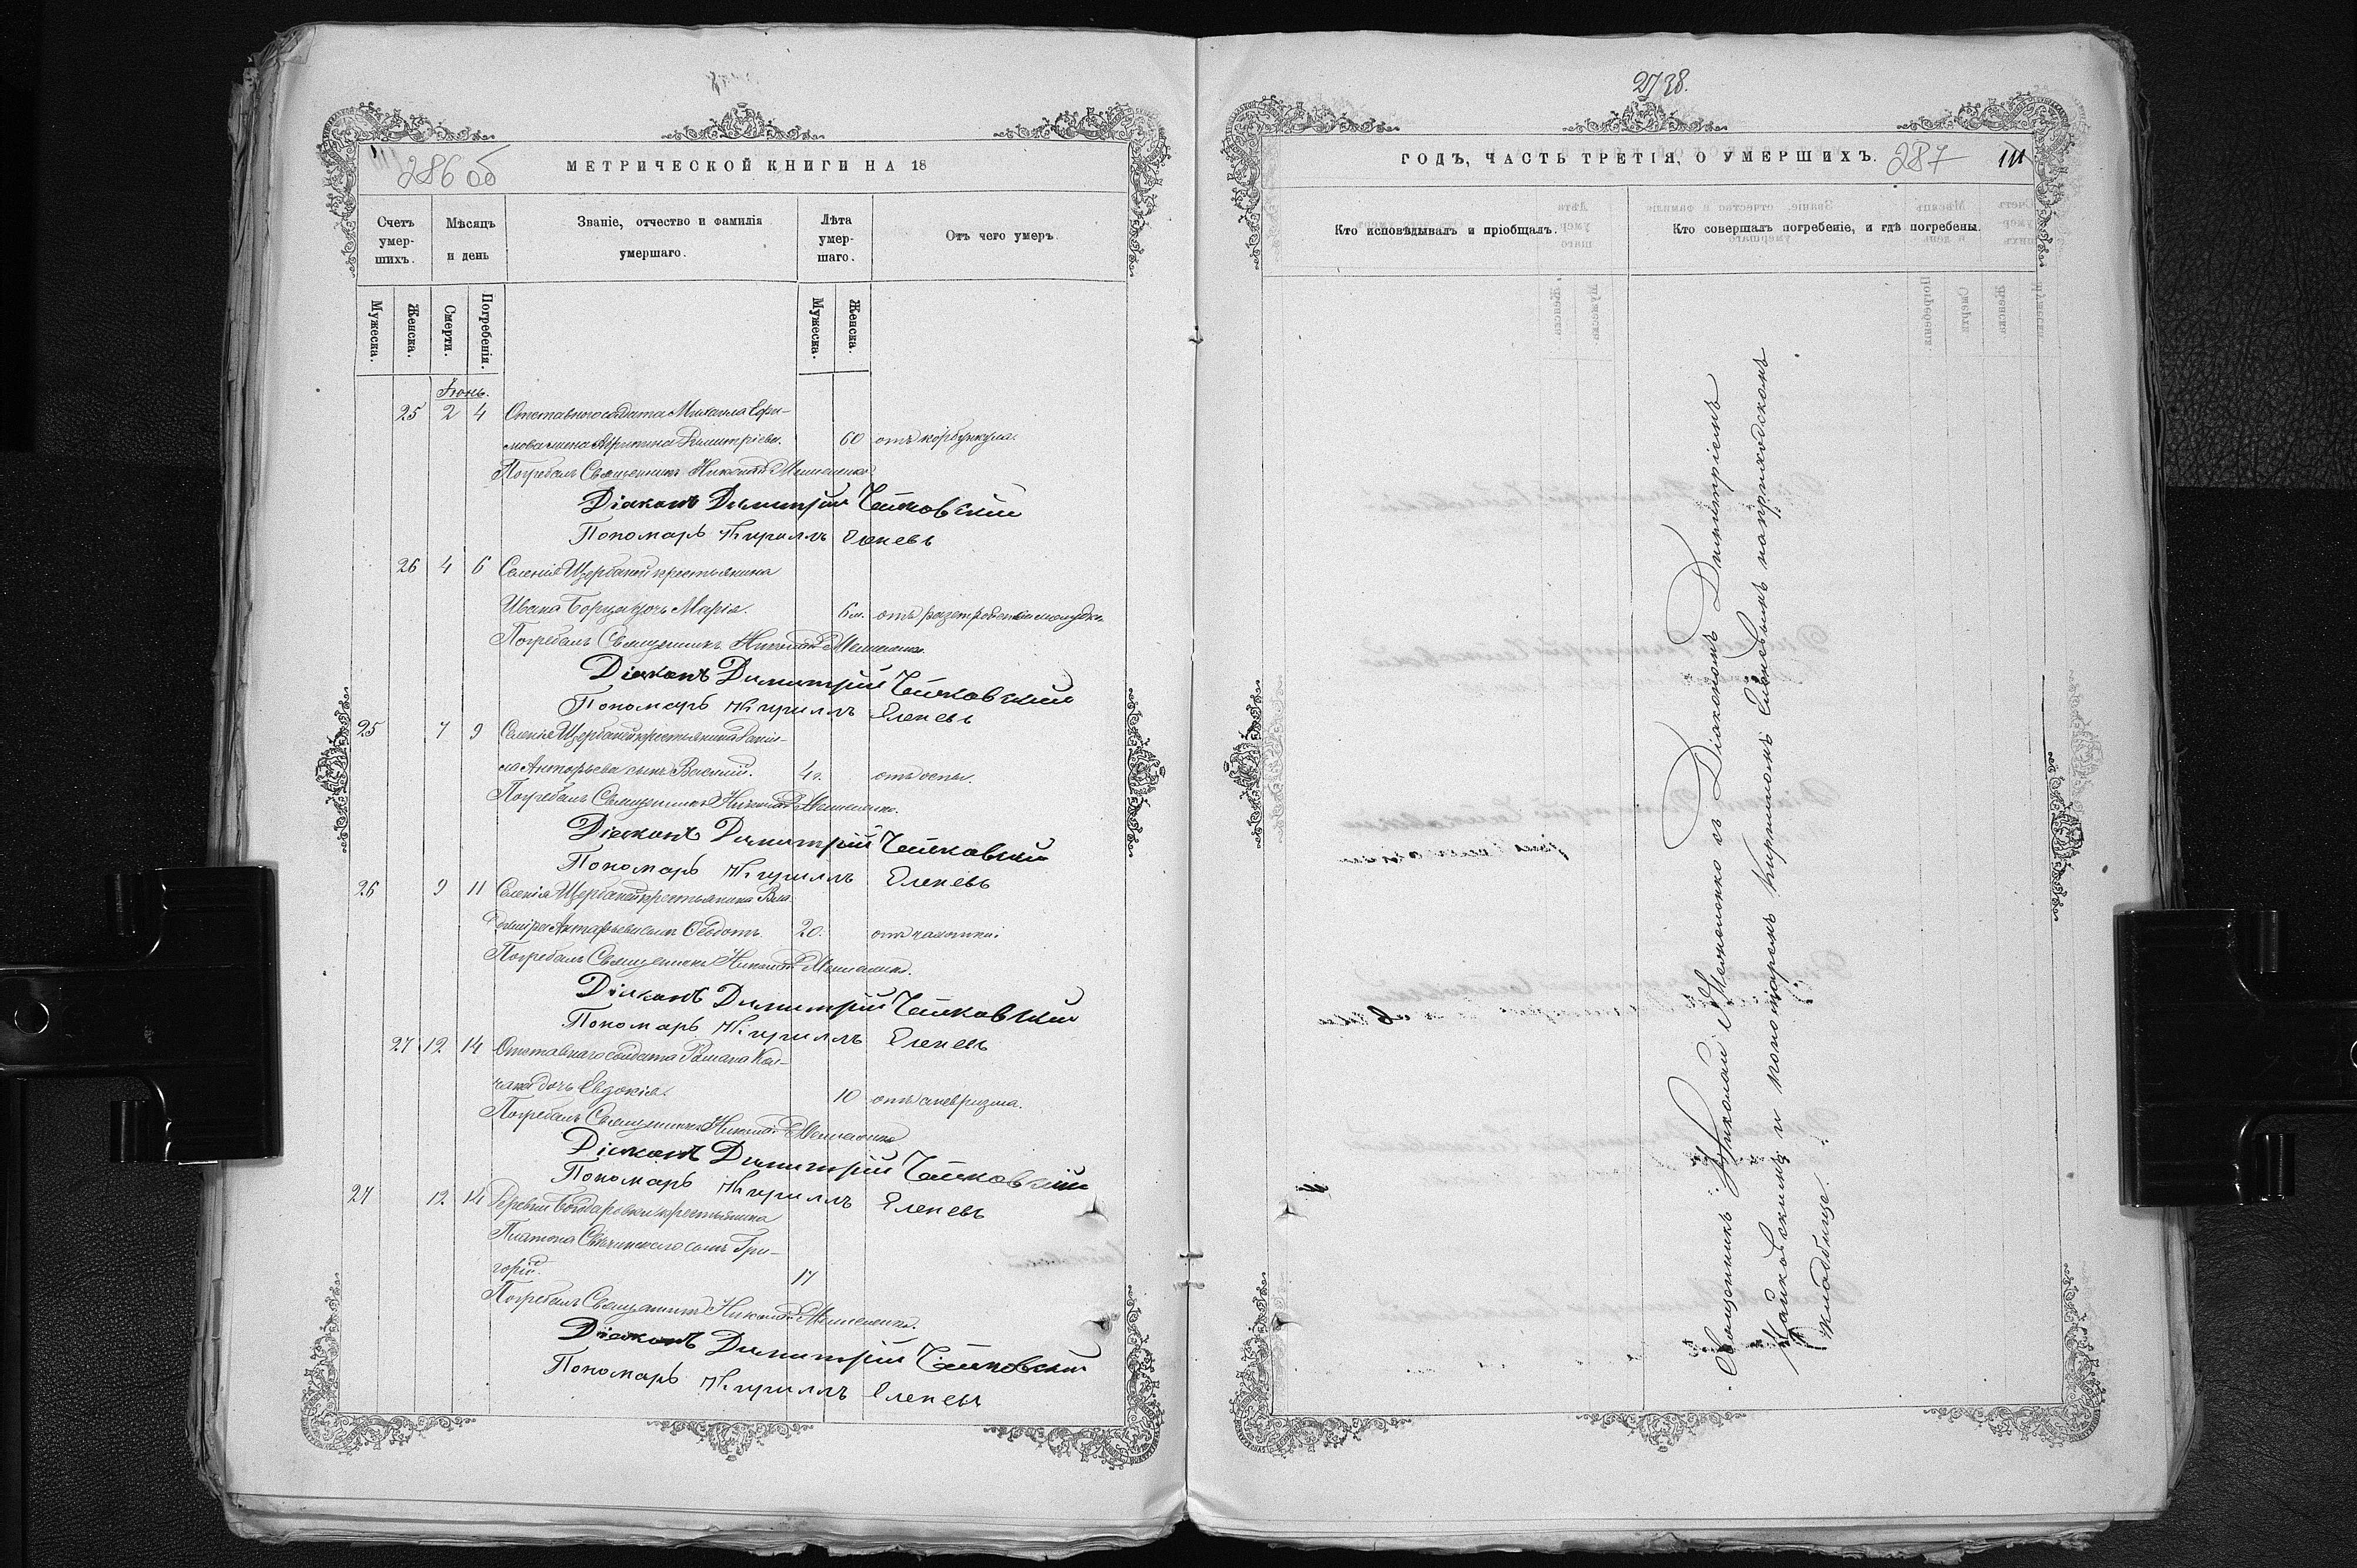 286 об
МЕТРИЧЕСКОЙ КНИГИ НА 18
Счетъ умер-шихъ.
Мѣсяцъ и день
Званіе, отчество и фамилія умершаго.
Лѣта умер-шаго.
Отъ чего умеръ.
Мужеска.
Женска.
Смерти.
Погребенія.
Мужеска.
Женска.
Іюнь.
25 2 4 Отставного солдата Михаила Ефи-
мова жена Димитріева. 60 отъ корбункула.
Погребалъ Священникъ Николай
Діаконъ Димитрій Чайковскій
Пономарь Кириллъ Еленевъ
26 4 6 Селенія Щербаной крестьянина
Ивана дочь Марія. 6 м. отъ разстройства желудка
Погребалъ Священникъ Николай
Діаконъ Димитрій Чайковскій
Пономарь Кириллъ Еленевъ
25 7 9 Селенія Щербаной крестьянина Дани-
ла сынъ Василій. 4 г. отъ оспы.
Погребалъ Священникъ Николай
Діаконъ Димитрій Чайковскій
Пономарь Кириллъ Еленевъ
26 9 11 Селенія Щербаной крестьянина Вла-
диміра сынъ Ѳеодотъ. 20. отъ чахотки.
Погребалъ Священникъ Николай
Діаконъ Димитрій Чайковскій
Пономарь Кириллъ Еленевъ
27 12 14 Отставнаго солдата Романа Кол-
чака дочь Евдокія. 10 отъ аневризма.
Погребалъ Священникъ Николай
Діаконъ Димитрій Чайковскій
Пономарь Кириллъ Еленевъ
27 12 14 Деревни Бондаровки крестьянина
Платона сынъ Гри-
горій. 17
Погребалъ Священникъ Николай
Діаконъ Димитрій Чайковскій
Пономарь Кириллъ Еленевъ
ГОДЪ, ЧАСТЬ ТРЕТІЯ, О УМЕРШИХЪ. 287
Кто исповѣдывалъ и пріобщалъ.
Кто совершалъ погребеніе, и гдѣ погребены.
Священникъ Николай съ Діакономъ Димитріемъ
Чайковскимъ и пономаремъ Кирилломъ Еленевымъ на приходскомъ
кладбищѣ.